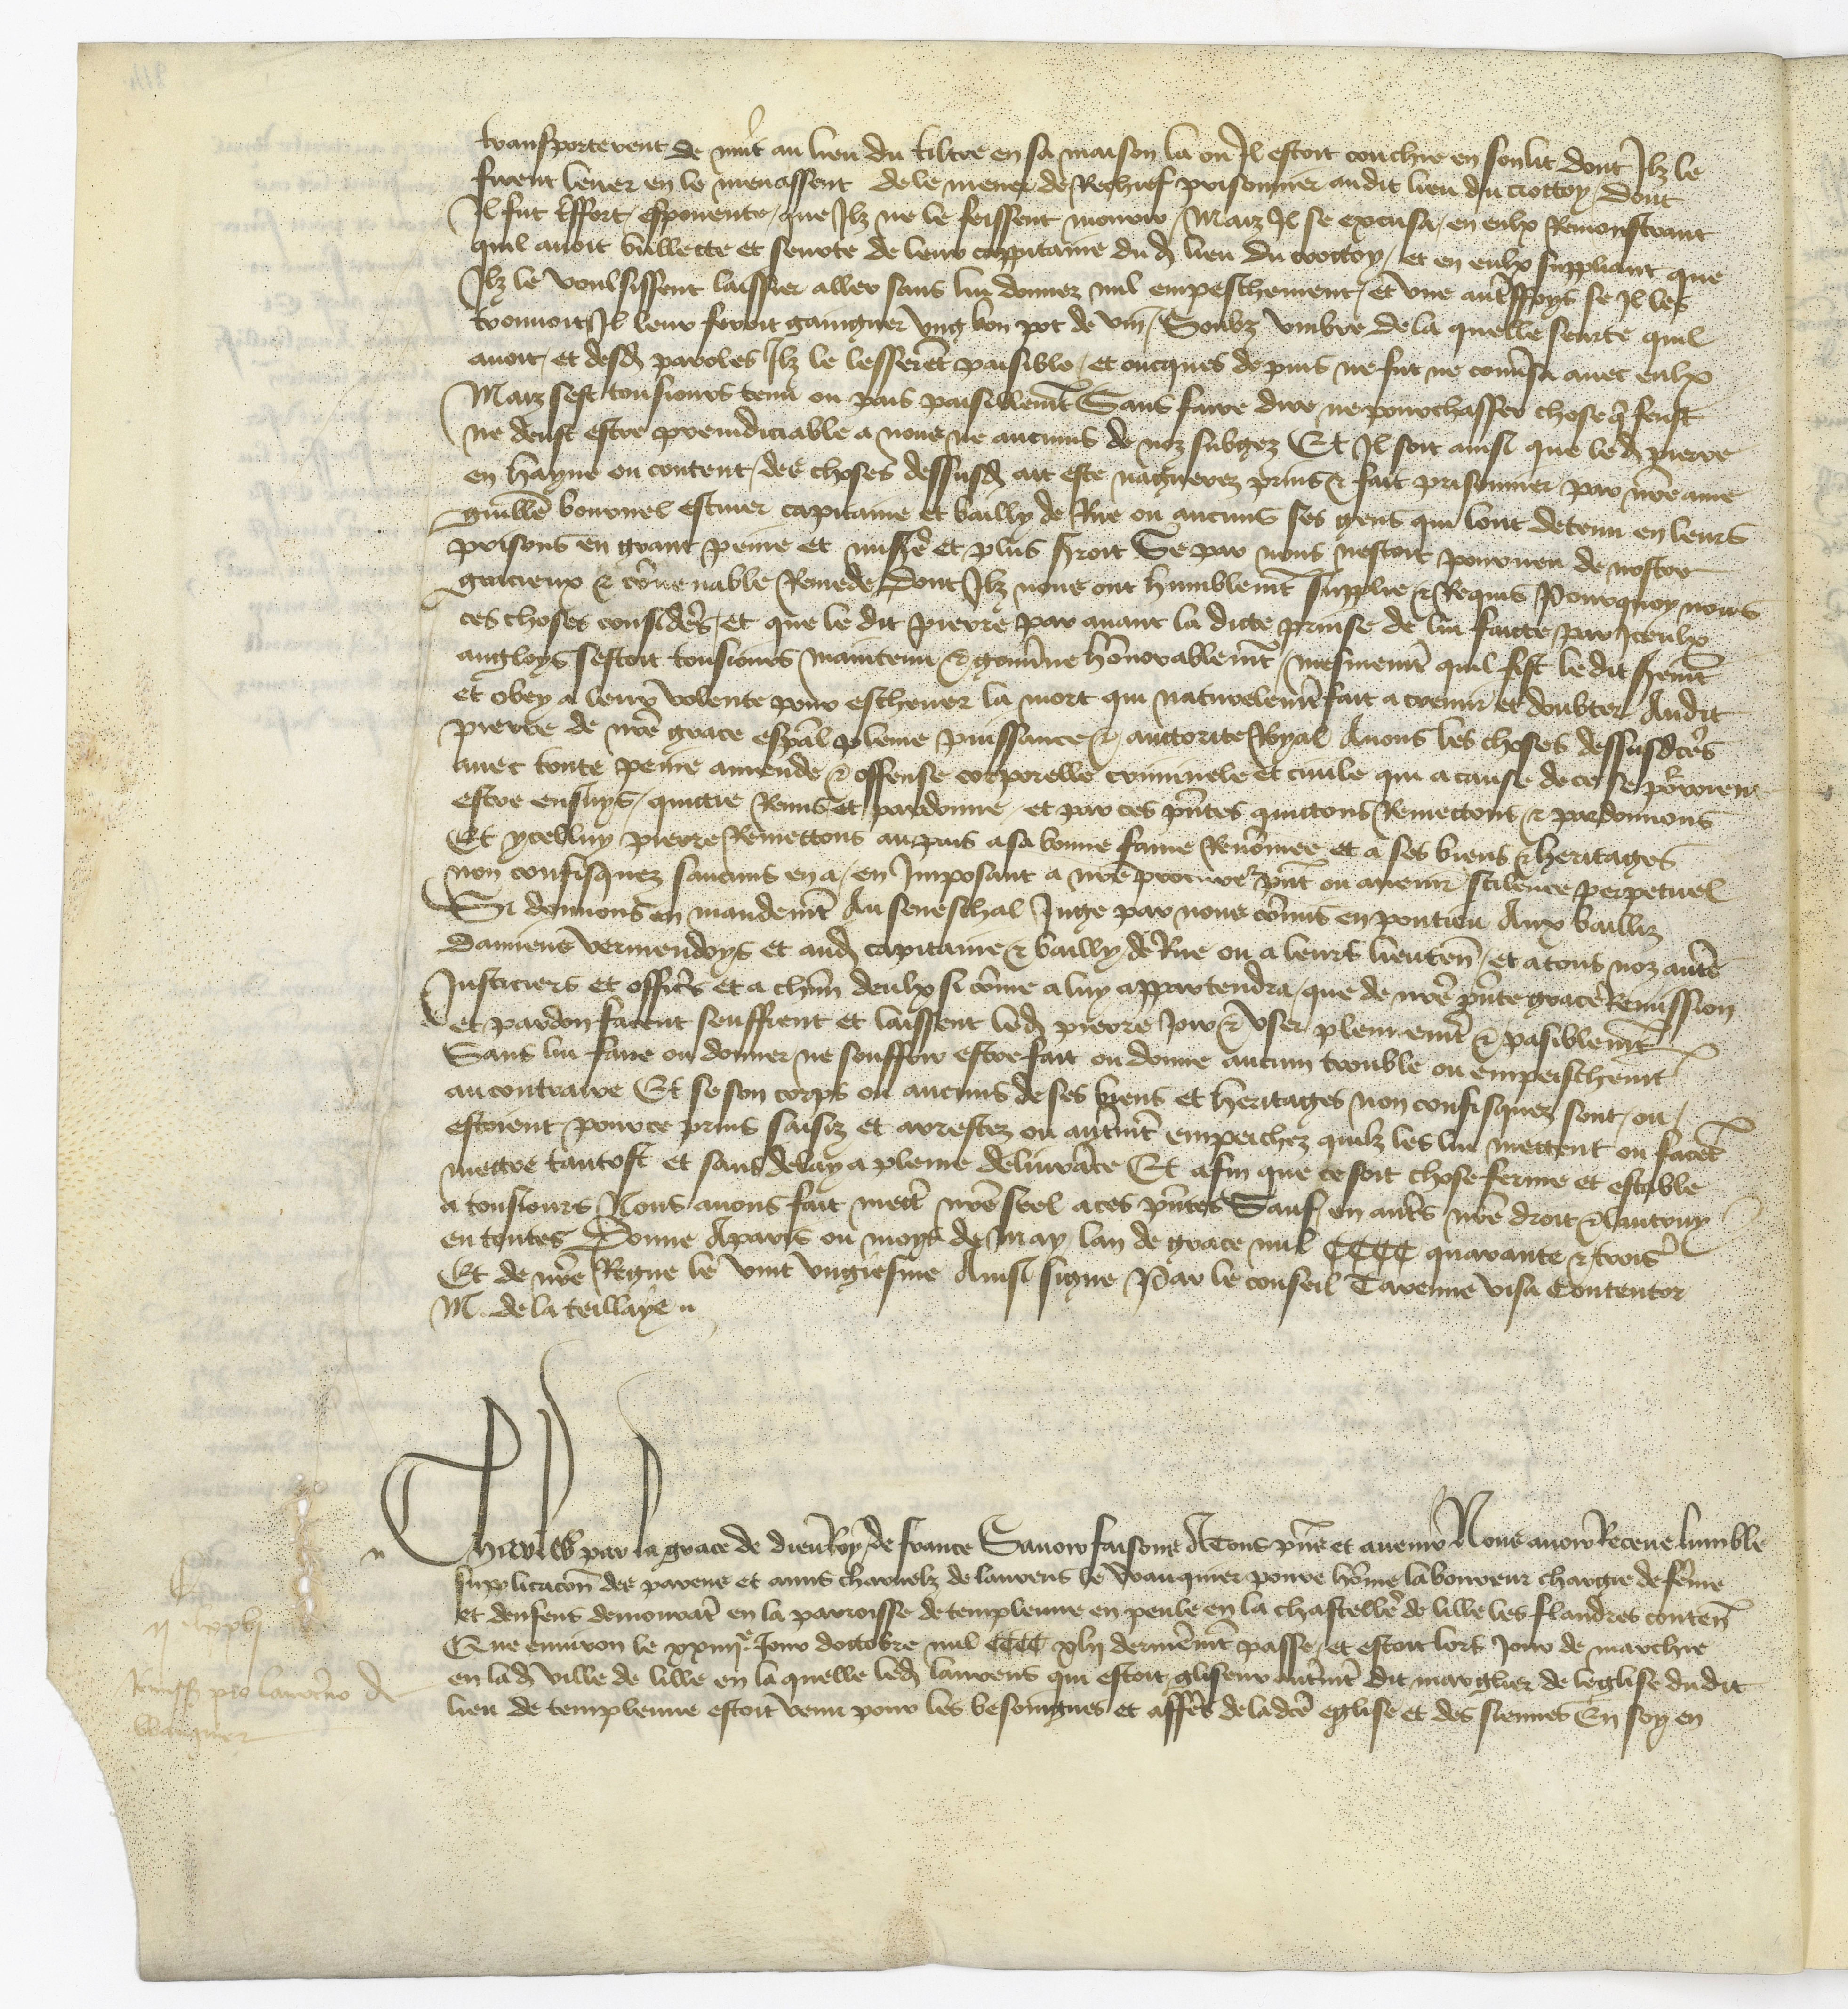 transporterent de nuit au lieu du tiltre en sa maison la ou Il estoit couchie en son lit dont Ilz le
firent lever en le menassent de le mener de Rechief prisonnier audit lieu du crottoy dont
Il fut effort esponente que Ilz ne le feissent mourir Maiz Il se excusa en eulx Remonstrant
quil avoit bullette et seurte de leur cappitaine dud lieu du crottoy et en eulx suppliant que
Ilz le voulsissent laissier aller sans lui donner nul empeschement et une autreffoys se Il les
trouvoit Il leur feroit gaingner ung bon pot de vin Soubz umbre de la quelle seurte quil
avoit et desd paroles Ilz le lesserent paisible et oncques depuis ne fut ne conversa avec eulx
Maiz sest tousiours tenu ou pais paisiblemt Sans faire dire ne pourchasser chose q feust
ne deust estre preiudiciable a nous ne aucuns de noz subgez Et Il soit ainsi que led pierre
en hayne ou content des choses dessusd ait este nagueres prins & fait prisonnier par nre ame
guille bournel escuier capitaine et bailly de Rue ou aucuns ses gens qui lont detenu en leurs
prisons en grant peine et misere et plus seroit Se par nous nestoit pourveu de nostre
gracieux & convenable Remede Dont Ilz nous ont humblemt supplie & Requis Pourquoy nous
ces choses considers et que le dit pierre par avant la dicte prinse de lui faicte par Iceulx
angloys sestoit tousiours maintenu & gouverne honnorablemt mesmement quil fist le dit serment
et obey a leur volente pour eschever la mort qui naturelemt fait a cremir et doubter Audit
pierre de nre grace espal pleine puissance & auctorite Royal Avons les choses dessusdctes
avec toute peine amende & offense corporelle criminele et civile qui a cause de ce se porroient
estre ensuys quictie Remis et pardonne et par ces pntes quictons Remettons & pardonnons
Et ycelluy pierre Remettons au pais a sa bonne fame Renommee et a ses biens & heritages
non confisquez saucuns en a en Imposant a nre procureur pnt ou avenir scilence perpetuel
Si donnons en mandemt Au seneschal Juge par nous commis en pontieu Aux bailliz
damiens vermendoys et aud capitaine & bailly de Rue ou a leurs lieuten et a tous noz autres
Justiciers et officrs et a chun deulx si comme a luy appartendra que de nre pnte grace Remission
et pardon facent seuffrent et laissent led pierre Joir & user plenement & pasiblemt
Sans lui faire ou donner ne souffrir estre fait ou donne aucun trouble ou empeischemt
au contraire Et se son corps ou aucuns de ses biens et heritages non confisquez sont ou
estoient pour ce prins saisiz et arrestez ou autremt empeichez quilz les lui mettent ou facent
mettre tantost et sans delay a pleine delivrance Et afin que ce soit chose ferme et estable
a tousiours Nous avons fait mettre nre seel a ces pntes Sauf en autres nre droit & lautruy
en toutes Donne A paris ou moys de may lan de grace mil CCCC quarante & trois
Et de nre Regne le vint ungiesme Ainsi signe Par le conseil Tarenne visa Contentor
M. de la teillaye
Charles par la grace de dieu Roy de france Savoir faisons A Tous pns et avenir Nous avoir Receue lumble
supplicacon des parens et amis charnelz de laurens le Wauquier povre homme laboureur chargie de femme
et denfens demourat en la parroisse de templeuve en peule en la chastellere de lille les flandres conten
Que environ le xxiiii e Jour doctobre mil CCCC xlii dernieremt passe et estoit lors Jour de marchie
en lad ville de lille en la quelle led laurens qui estoit gliseur autremt dit marglier de leglise dudit
lieu de templeuve estoit venu pour les besoingnes et affes de ladce eglise et des siennes En soy en
Remiss pro laurecio de
Wauquier